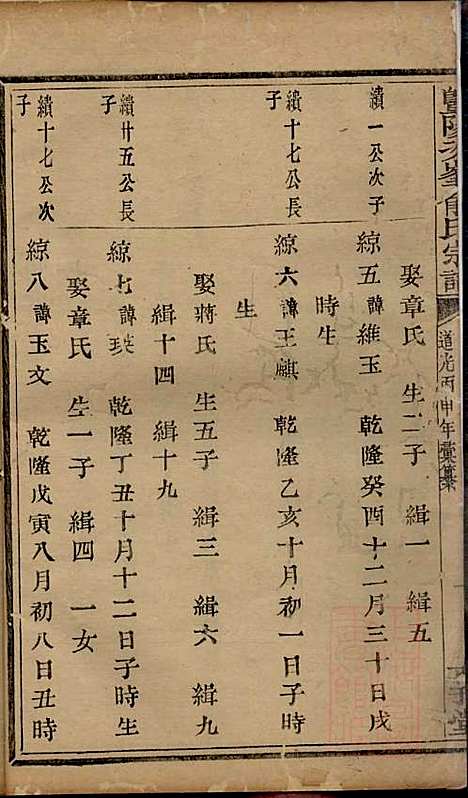 暨陽孝峯俞氏宗譜
道光丙申年彙纂
娶章氏 生二子 緝一 緝五
續一公次子
綜五 諱維玉 乾隆癸酉十二月三十日戌
時生
續十七公長
子
綜六 諱玉麒 乾隆乙亥十月初一日子時
生
娶蔣氏 生五子 緝三 緝六 緝九
緝十四 緝十九
續廿五公長
子
綜七 諱瑛 乾隆丁丑十月十二日子時生
娶章氏 生一子 緝四 一女
續十七公次
子
綜八 諱玉文 乾隆戊寅八月初八日丑時